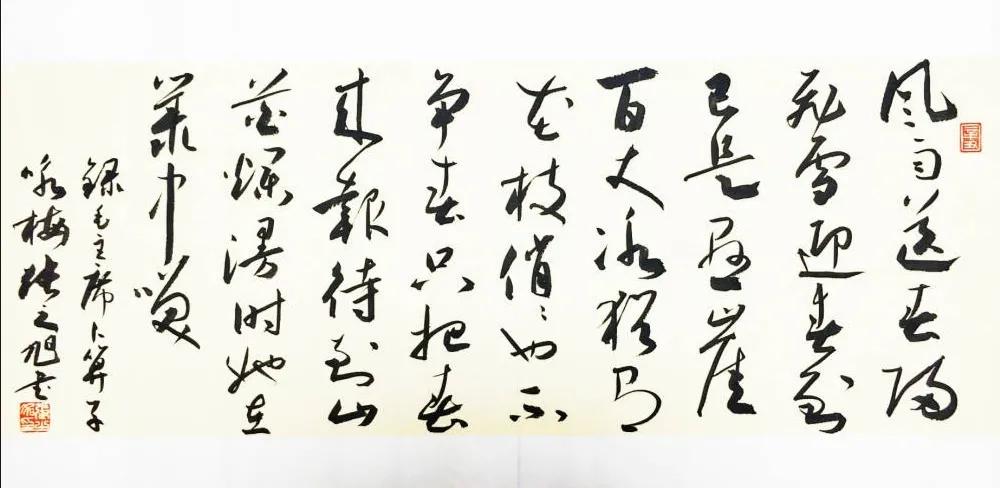 风雨送春归
飞雪迎春到
已是悬崖
百丈冰犹有
花枝俏々也不
争春只把春
来报待到山
花烂漫时她在
丛中笑
録毛主席卜算子
咏梅张之旭书